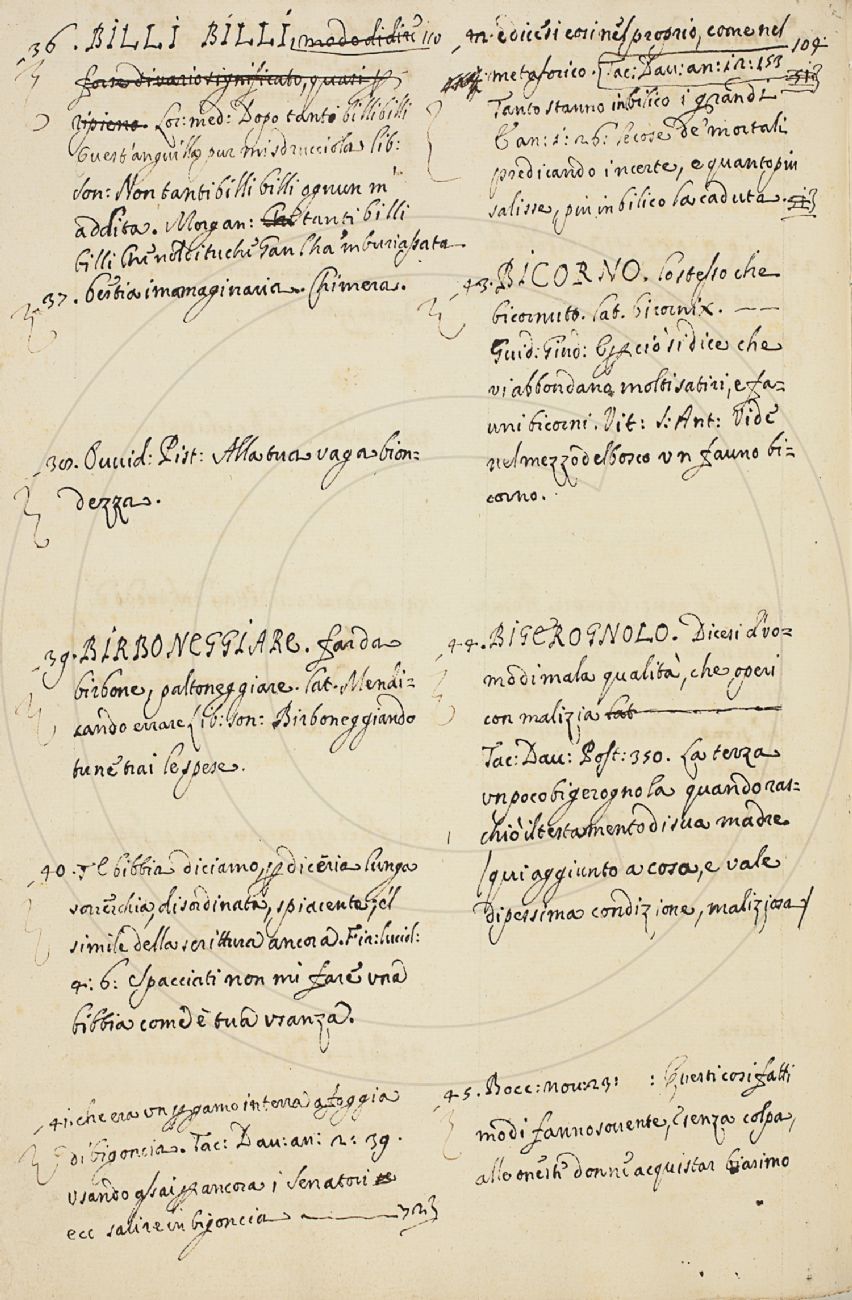 36. BILLI BILLI, modo di dire 110
forse di vario significato, quasi
ripieno. Lor: med: Dopo tanto billi billi
Quest'anguilla pur mi sdrucciola lib:
son: Non tanti billi billi ognun m'
addita. Morgan: Che tanti billi
billi
37. bestia immaginaria. Chimera.
38. Ovvid: Pist: Alla tua vaga bion=
dezza.
39. BIRBONEGGIARE. far da
birbone, paltoneggiare. lat. Mendi=
cando errare lib: son: Birboneggiando
tu ne trai le spese.
40. bibbia diciamo, p diceria lunga
soverchia, disordinata, spiacente, e'l
simile della scrittura ancora. Fir: lucid:
4: 6: Spacciati non mi fare una
bibbia com'è tua usanza.
41. che era un pgamo in terra a foggia
di bigoncia. Tac: Dav: an: 2: 39.
usando assai p ancora i Senatori
ecc salire in bigoncia 323
42. e dicesi così nel proprio, come nel 104
metaforico. Tac: Dav: an: 12: 153 513
Tanto stanno in bilico i grandi
E an: 1: 26: le cose de' mortali
predicando incerte, e quanto più
salisse, più in bilico la caduta. 513
43. BICORNO. lo stesso che
bicornuto. lat. bicornix.
Guid: Giud: E p ciò si dice che
vi abbondano molti satiri, e fa=
uni bicorni. Vit: S: Ant: Vide
nel mezzo del bosco un fauno bi=
corno.
44. BIGEROGNOLO. Dicesi d'uo=
mo di mala qualità, che operi
con malizia lat
Tac: Dav: Post: 350. La terza
un poco bigerognola quando ras=
chiò il testamento di sua madre
/qui aggiunto a cosa, e vale
di pessima condizione, maliziosa/
45. Bocc: nov: 23: : Questi così fatti
modi fanno sovente, senza colpa,
alle oneste donne acquistar biasimo